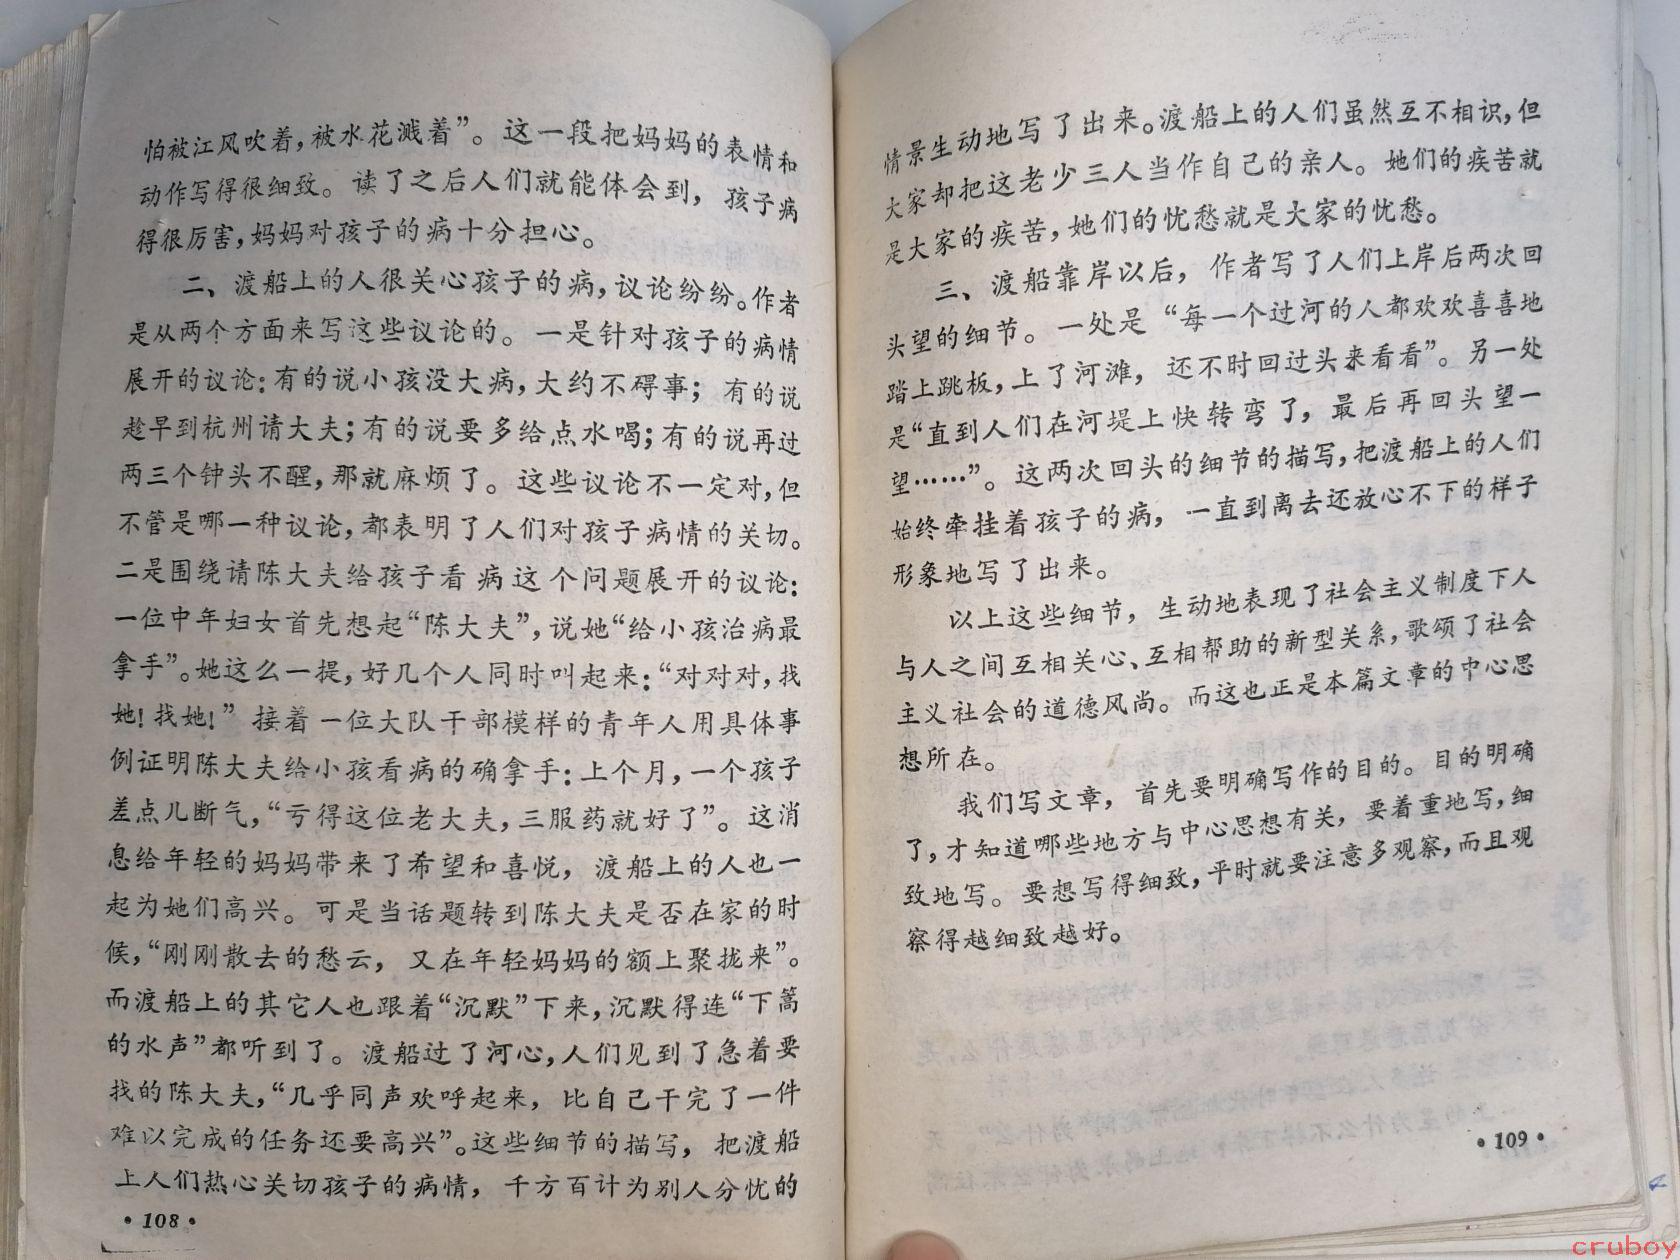 怕被江风吹着，被水花溅着”。这一段把妈妈的表情和
动作写得很细致。读了之后人们就能体会到，孩子病
得很厉害，妈妈对孩子的病十分担心。
二、渡船上的人很关心孩子的病，议论纷纷。作者
是从两个方面来写这些议论的。一是针对孩子的病情
展开的议论：有的说小孩没大病，大约不碍事；有的说
趁早到杭州请大夫；有的说要多给点水喝；有的说再过
两三个钟头不醒，那就麻烦了。这些议论不一定对，但
不管是哪一种议论，都表明了人们对孩子病情的关切。
二是围绕请陈大夫给孩子看病这个问题展开的议论：
一位中年妇女首先想起“陈大夫”，说她“给小孩治病最
拿手”。她这么一提，好几个人同时叫起来：“对对对，找
她！找她！”接着一位大队干部模样的青年人用具体事
例证明陈大夫给小孩看病的确拿手：上个月，一个孩子
差点儿断气，“亏得这位老大夫，三服药就好了”。这消
息给年轻的妈妈带来了希望和喜悦，渡船上的人也一
起为她们高兴。可是当话题转到陈大夫是否在家的时
候，“刚刚散去的愁云，又在年轻妈妈的额上聚拢来”。
而渡船上的其它人也跟着“沉默”下来，沉默得连“下篙
的水声”都听到了。渡船过了河心，人们见到了急着要
找的陈大夫，“几乎同声欢呼起来，比自己干完了一件
难以完成的任务还要高兴”。这些细节的描写，把渡船
上人们热心关切孩子的病情，千方百计为别人分忧的
·108·
情景生动地写了出来。渡船上的人们虽然互不相识，但
大家却把这老少三人当作自己的亲人。她们的疾苦就
是大家的疾苦，她们的忧愁就是大家的忧愁。
三、渡船靠岸以后，作者写了人们上岸后两次回
头望的细节。一处是“每一个过河的人都欢欢喜喜地
踏上跳板，上了河滩，还不时回过头来看看”。另一处
是“直到人们在河堤上快转弯了，最后再回头望一
望……”。这两次回头的细节的描写，把渡船上的人们
始终牵挂着孩子的病，一直到离去还放心不下的样子
形象地写了出来。
以上这些细节，生动地表现了社会主义制度下人
与人之间互相关心、互相帮助的新型关系，歌颂了社会
主义社会的道德风尚。而这也正是本篇文章的中心思
想所在。
我们写文章，首先要明确写作的目的。目的明确
了，才知道哪些地方与中心思想有关，要着重地写，细
致地写。要想写得细致，平时就要注意多观察，而且观
察得越细致越好。
·109·
cruboy